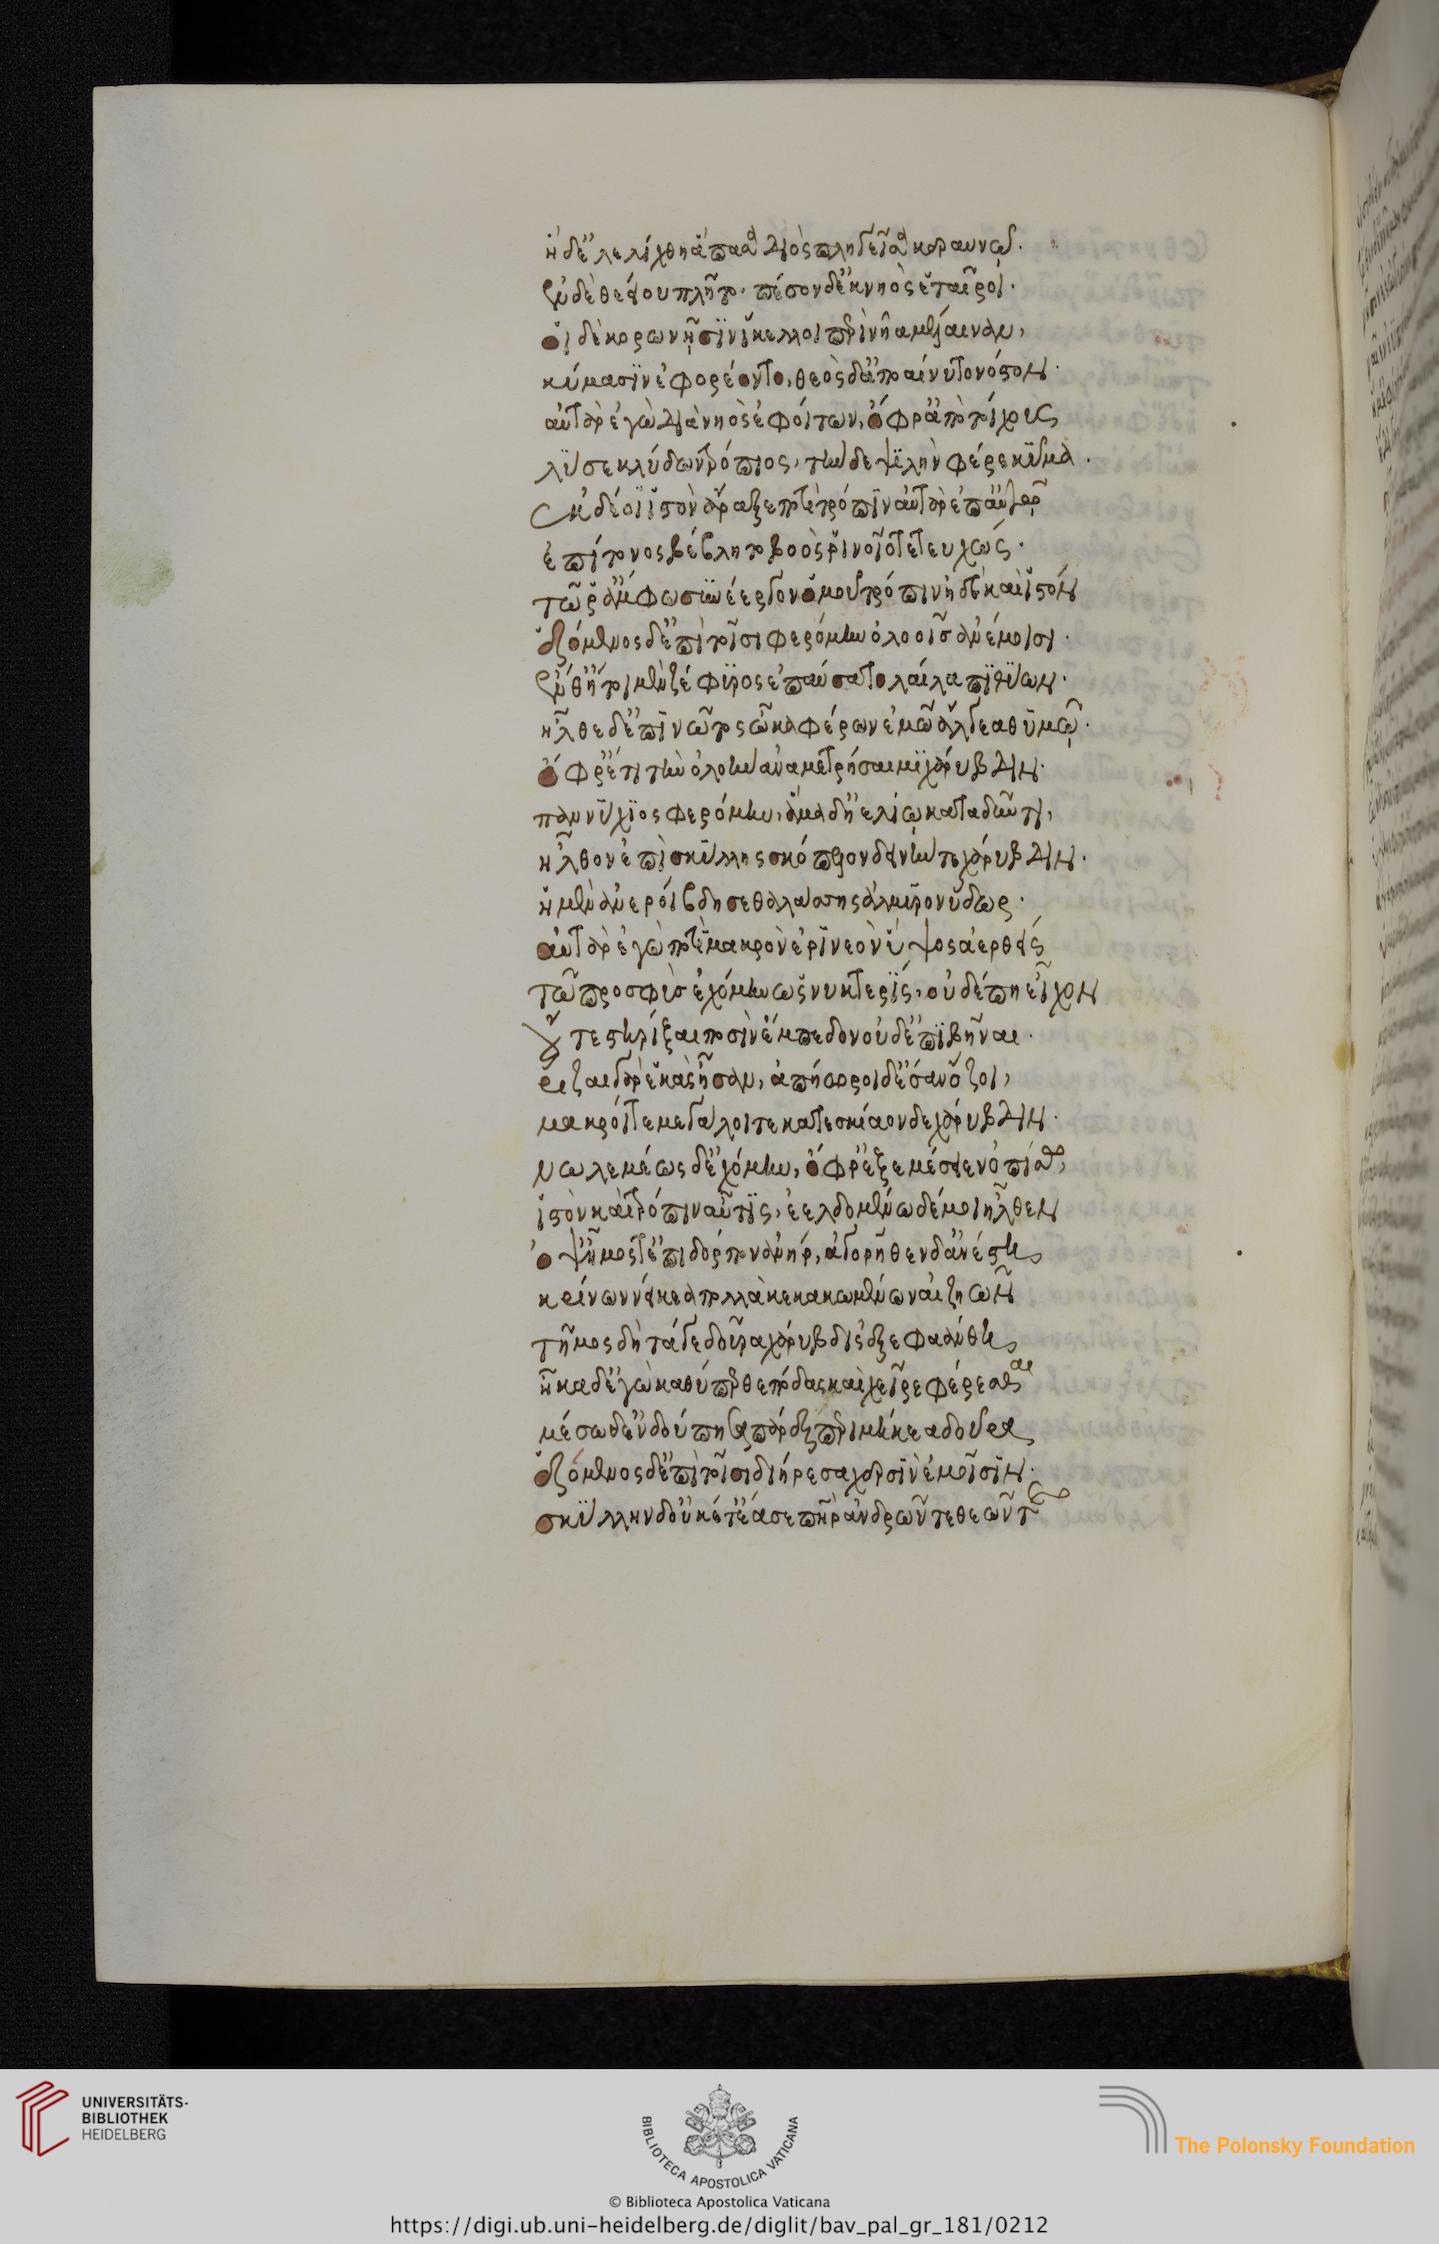 ἡ δ' ἐλελίχθη ἅπασα Διὸς πληγεῖσα κεραυνῷ.
ἐν δὲ θεείου πλῆτο. πέσον δ' ἐκ νηὸς ἑταῖροι.
οἱ δὲ κορώνῃσιν ἴκελοι περὶ νῆα μέλαιναν,
κύμασιν ἐφορέοντο, θεὸς δ' ἀποαίνυτο νόστον.
αὐτὰρ ἐγὼ διὰ νηὸς ἐφοίτων, ὄφρ' ἀπὸ τοίχους
λῦσε κλύδων τρόπιος, τὴν δε ψιλὴν φέρε κῦμα.
ἐκ δέ οἱ ἱστὸν ἄραξε ποτὲ τρόπιν αὐτὰρ ἐπ' αὐτῷ
ἐπίτονος βέβλητο βοὸς ῥινοῖο τετευχώς.
τῷ ῥ' ἄμφω συνέεργον ὁμοῦ τρόπιν ἠδὲ καὶ ἱστόν
ἑζόμενος δ' ἐπὶ τοῖσι φερόμην ὀλοοῖσ ἀνέμοισι.
ἔνθ' ἤτοι μὲν ζέφυρος ἐπαύσατο λαίλαπι θύων.
ἦλθε δ' ἐπὶ νῶτος ὦκα φέρων ἐμῷ ἄλγεα θυμῷ.
ὄφρ' ἔτι τὴν ὀλοὴν ἀναμετρήσαιμι χάρυβδιν.
παννύχιος φερόμην, ἅμα δ' ἠελίῳ καταδῦντι,
ἦλθον ἐπὶ σκύλλης σκόπελον δεινήν τε χάρυβδιν.
ἡ μὲν ἀνερόιβδησε θαλάσσης ἁλμυρὸν ὕδωρ.
αὐτὰρ ἐγὼ ποτὶ μακρὸν ἐρινεὸν ὑψος ἀερθείς
τῷ προσφὺσ ἐχόμην ὡς νυκτερίς, οὐδέ πῃ εἶχον
οὔτε στηρίξαι ποσὶν ἔμπεδον οὐδ' ἐπιβῆναι.
ῥίζαι γὰρ ἑκὰς ἦσαν, ἀπήωροι δ' ἔσαν ὄζοι,
μακροί τε μεγάλοι τε κατεσκίαον δε χάρυβδιν.
νωλεμέως δ' ἐχόμην, ὄφρ' ἐξεμέσειεν ὀπίσσω,
ἱστὸν καὶ τρόπιν αὖτις, ἐελδομένω δέ μοι ἦλθεν
ὀψ' ἦμος τ' ἐπὶ δόρπον ἀνήρ, ἀγορῆθεν δ' ἀνέστη
κρίνων νείκεα πολλὰ κεκακωμένων αἰζηῶν
τῆμος δὴ τάγε δοῦρα χάρυβδις ἐξεφαάνθη
ἧκα δ' ἐγὼ καθύπερθε πόδας καὶ χεῖρε φέρεσθαι
μέσω δ' ἐνδούπησα παρὲξ περιμήκεα δοῦρα
ἑζόμενος δ' ἐπὶ τοῖσι διήρεσα χερσὶν ἐμοῖσιν.
σκύλλην δ' οὐκέτ' ἔασε πατὴρ ἀνδρῶν τε θεῶν τε
UNIVERSITÄTS-
BIBLIOTHEK
HEIDELBERG
BIBLIOTECA APOSTOLICA VATICANA
The Polonsky Foundation
© Biblioteca Apostolica Vaticana
https://digi.ub.uni-heidelberg.de/diglit/bav_pal_gr_181/0212